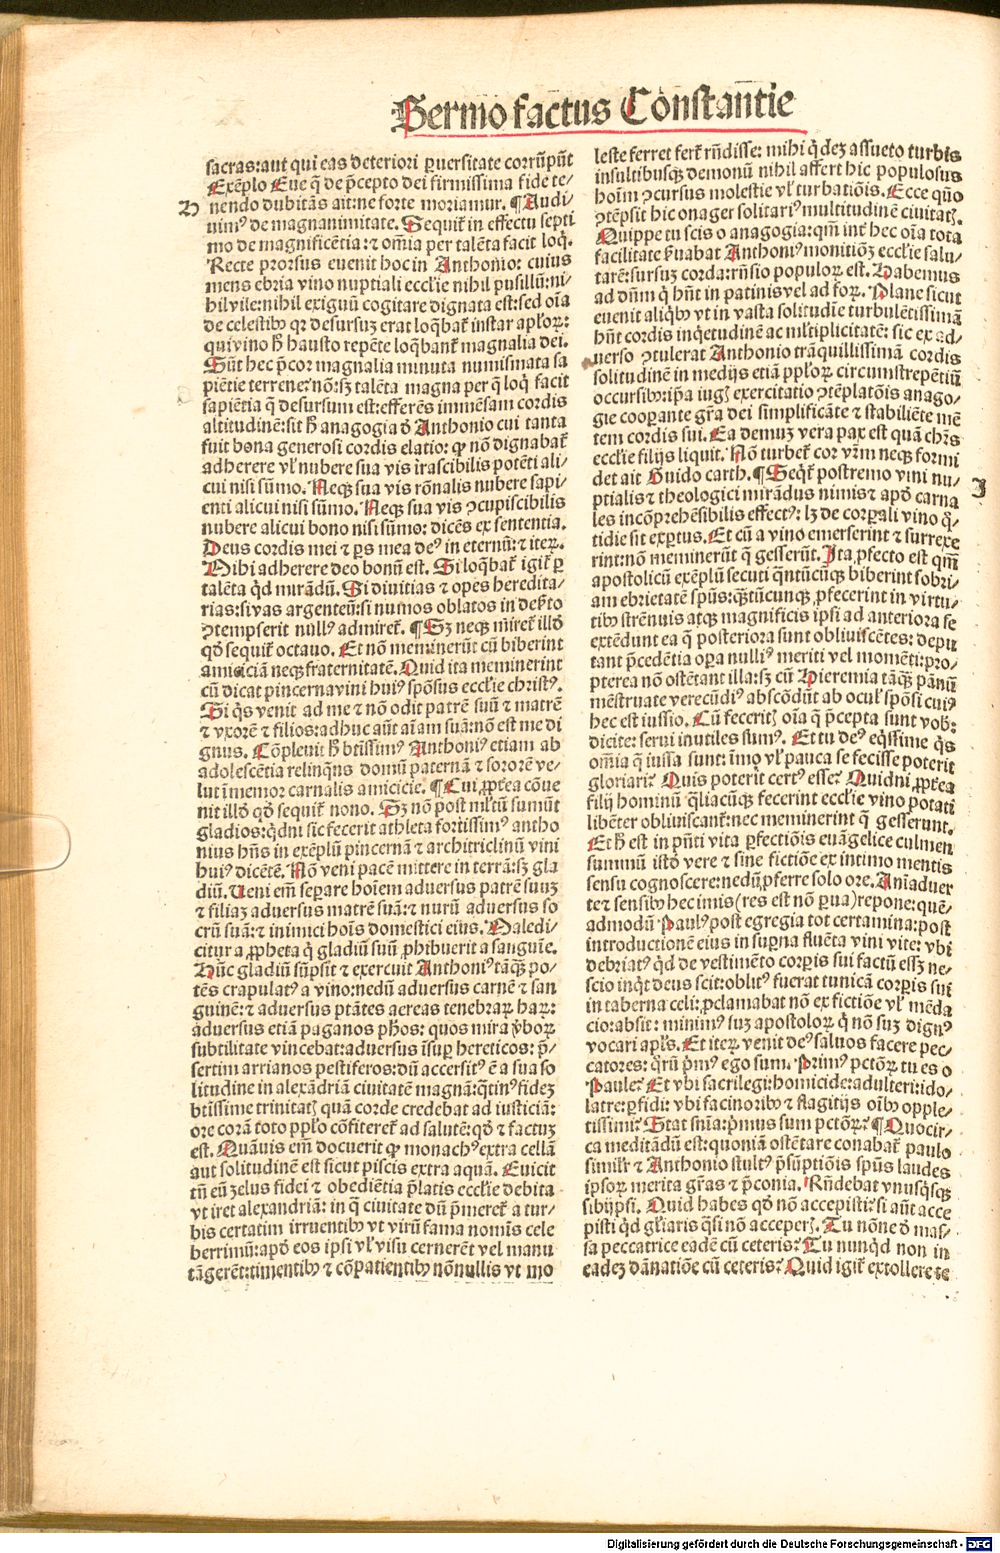 Sermo factus Constantie
sacras:aut qui eas deteriori ꝑuersitate corrūpūt
Exēplo Eue q̄ de p̄cepto dei firmissima fide te⸗
nendo dubitās ait:ne forte moriamur. ¶ Audi⸗
H
uimꝰ de magnanimitate. Sequit̄ in effectu septi
mo de magnificētia:⁊ oīa per talēta facit loq̄.
Recte prorsus euenit hoc in Anthonio: cuius
mens ebria vino nuptiali eccl̄ie nihil pusillū:ni⸗
hil vile:nihil exiguū cogitare dignata est:sed oīa
de celestibꝰ qꝛ desursuꝫ erat loq̄bat̄ instar apl̄oꝝ:
qui vino h̄ hausto repēte loq̄bant̄ magnalia dei.
Sūt hec p̄cor magnalia minuta numismata sa
piētie terrene:nō:sꝫ talēta magna per q̄ loq̄ facit
sapiētia q̄ desursum est:efferēs immēsam cordis
altitudinē:sit h̄ anagogia ď Anthonio cui tanta
fuit bona generosi cordis elatio: ꝙ nō dignabat̄
adherere vl̄ nubere sua vis irascibilis potēti ali⸗
cui nisi sūmo. Neqꝫ sua vis rōnalis nubere sapi⸗
enti alicui nisi sūmo. Neqꝫ sua vis ꝯcupiscibilis
nubere alicui bono nisi sūmo: dicēs ex sententia.
Deus cordis mei ⁊ ꝑs mea deꝰ in eternū:⁊ iteꝝ.
Mihi adherere deo bonū est. Si loq̄bat̄ igit̄ ꝑ
talēta qd̄ mirādū. Si diuitias ⁊ opes heredita⸗
rias:si vas argenteū:si numos oblatos in deẜto
ꝯtempserit nullꝰ admiret̄. ¶ Sꝫ neqꝫ miret̄ illď
qď sequit̄ octauo. Et nō meminerūt cū biberint
amiciciam neqꝫ fraternitatē. Quid ita meminerint
cū dicat pincerna vini huiꝰ spōsus eccl̄ie christꝰ.
Si q̄s venit ad me ⁊ nō odit patrē suū ⁊ matrē
⁊ vxorē ⁊ filios:adhuc aūt aīam suā:nō est me di
gnus. Cōpleuit h̄ btīssimꝰ Anthoniꝰ etiam ab
adolescētia relinq̄ns domū paternā ⁊ sororē ve⸗
lut īmemor carnalis amicicie. ¶ Cui ꝓpt̄ea cōue
nit illď qď sequit̄ nono. Sꝫ nō post ml̄tū sumūt
gladios:qd̄ni sic fecerit athleta fortissimꝰ antho
nius hn̄s in exēplū pincernā ⁊ architriclinū vini
huiꝰ dicētē. Nō veni pacē mittere in terrā:sꝫ gla
diū. Ueni em̄ seꝑare hoīem aduersus patrē suuꝫ
⁊ filiaꝫ aduersus matrē suā:⁊ nurū aduersus so
crū suā:⁊ inimici hoīs domestici eius. Maledi⸗
citur a ꝓpheta q̄ gladiū suū ꝓhibuerit a sanguīe.
Hūc gladiū sūpsit ⁊ exercuit Anthoniꝰ tāqꝫ po⸗
tēs crapulatꝰ a vino:nedū aduersus carnē ⁊ san
guinē:⁊ aduersus ptātes aereas tenebraꝝ haꝝ:
aduersus etiā paganos ph̄os: quos mira v̄boꝝ
subtilitate vincebat:aduersus īsuꝑ hereticos: p̄⸗
sertim arrianos pestiferos:dū accersitꝰ ē a sua so
litudine in alexādriā ciuitatē magnā:q̄tinꝰ fideꝫ
btīssime trinitatꝭ quā corde credebat ad iusticiā:
ore corā toto ppl̄o cōfiteret̄ ad salutē:qď ⁊ factuꝫ
est. Quāuis em̄ docuerit ꝙ monachꝰ extra cellā
aut solitudinē est sicut piscis extra aquā. Euicit
tn̄ eū zelus fidei ⁊ obediētia p̄latis eccl̄ie debita
vt iret alexandriā: in q̄ ciuitate dū p̄meret̄ a tur⸗
bis certatim irruentibꝰ vt virū fama nomīs cele
berrimū:apď eos ipsi vl̄ visu cernerēt vel manu
tāgerēt:timentibꝰ ⁊ cōpatientibꝰ nōnullis vt mo
leste ferret fert̄ rn̄disse: mihi q̄ deꝫ assueto turbis
insultibusqꝫ demonū nihil affert hic populosus
hoīm ꝯcursus molestie vl̄ turbatiōis. Ecce quō
ꝯtēpsit hic onager solitariꝰ multitudinē ciuitatꝭ.
Quippe tu scis o anagogia:qm̄ int̄ hec oīa tota
facilitate ẜuabat Anthoniꝰ monitiōꝫ eccl̄ie salu⸗
tarē:sursuꝫ corda:rn̄sio populoꝝ est. Habemus
ad dn̄m q̄ hn̄t in patinis vel ad foꝝ. Plane sicut
euenit aliqͥbꝰ vt in vasta solitudīe turbulētissimā
hn̄t cordis inq̄etudinē ac ml̄tiplicitatē: sic ex ad⸗
uerso ꝯtulerat Anthonio trāquillissimā cordis
solitudinē in medijs etiā ppl̄oꝝ circumstrepētiū
occursibꝰ:ip̄a iugꝭ exercitatio ꝯtēplatōis anago⸗
gie cooꝑante gr̄a dei simplificāte ⁊ stabiliēte mē
tem cordis sui. Ea demuꝫ vera pax est quā chr̄s
eccl̄ie filijs liquit. Nō turbet̄ cor vr̄m neqꝫ formi
det ait Guido carth. ¶ Seqt̄ postremo vini nu⸗
J
ptialis ⁊ theologici mirādus nimis ⁊ apď carna
les incōprehēsibilis effectꝰ: lꝫ de corꝑali vino q̄⸗
tidie sit exꝑtus. Et cū a vino emerserint ⁊ surrexe
rint:nō meminerūt q̄ gesserūt. Ita ꝓfecto est qm̄
apostolicū exēplū secuti q̄ntūcūqꝫ biberint sobri⸗
am ebrietatē spūs:q̄ntūcunqꝫ ꝓfecerint in virtu⸗
tibꝰ strēnuis atqꝫ magnificis ipsi ad anteriora se
extēdunt ea q̄ posteriora sunt obliuiscētes: depu
tant p̄cedētia oꝑa nulliꝰ meriti vel momēti:pro⸗
pterea nō ostētant illa:sꝫ cū Hieremia tāqꝫ pānū
mēstruate verecūdiꝰ abscōdūt ab ocul̄ spōsi cuiꝰ
hec est iussio. Cū feceritꝭ oīa q̄ p̄cepta sunt vob̄:
dicite: serui inutiles sumꝰ. Et tu deꝰ eq̄ssime q̄s
omīa q̄ iussa sunt: īmo vl̄ pauca se fecisse poterit
gloriari? Quis poterit certꝰ esse? Quidni ꝓpt̄ea
filij hominū q̄liacūqꝫ fecerint eccl̄ie vino potati
libēter obliuiscant̄:nec meminerint q̄ gesserunt.
Et h̄ est in p̄nti vita ꝑfectiōis euāgelice culmen
summū istď vere ⁊ sine fictiōe ex intimo mentis
sensu cognoscere:nedū ꝓferre solo ore. Anīaduer
te ⁊ sensibꝰ hec imis (res est nō ꝑua) repone: quē⸗
admodū Paulꝰ post egregia tot certamina:post
introductionē eius in suꝑna fluēta vini vite: vbi
debriatꝰ qd̄ de vestimēto corꝑis sui factū essꝫ ne⸗
scio inqͥt deus scit:oblitꝰ fuerat tunicā corꝑis sui
in taberna celi: ꝓclamabat nō ex fictiōe vl̄ mēda
cio:absit: minimꝰ suꝫ apostoloꝝ q̄ nō suꝫ dignꝰ
vocari apl̄s. Et iteꝝ venit deꝰ saluos facere pec⸗
catores: q̄rū p̄mꝰ ego sum. Primꝰ pctōꝝ tu es o
Paule? Et vbi sacrilegi:homicide:adulteri:ido⸗
latre:ꝑfidi: vbi facinoribꝰ ⁊ flagitijs oībꝰ opple⸗
tissimi? Stat snīa:p̄mus sum pctōꝝ? ¶ Quocir⸗
ca meditādū est:quoniā ostētare conabat̄ paulo
simil̄r ⁊ Anthonio stultꝰ p̄sūptiōis spūs laudes
ipsoꝝ merita gr̄as ⁊ p̄conia. Rn̄debat vnusq̄sqꝫ
sibijpsi. Quid habes qď nō accepisti? si aūt acce
pisti qd̄ gl̄iaris q̄si nō acceperꝭ. Tu nōne ď mas⸗
sa peccatrice eadē cū ceteris? Tu nunqd̄ non in
eadeꝫ dānatiōe cū ceteris? Quid igit̄ extollere te
Digitalisierung gefördert durch die Deutsche Forschungsgemeinschaft - DFG